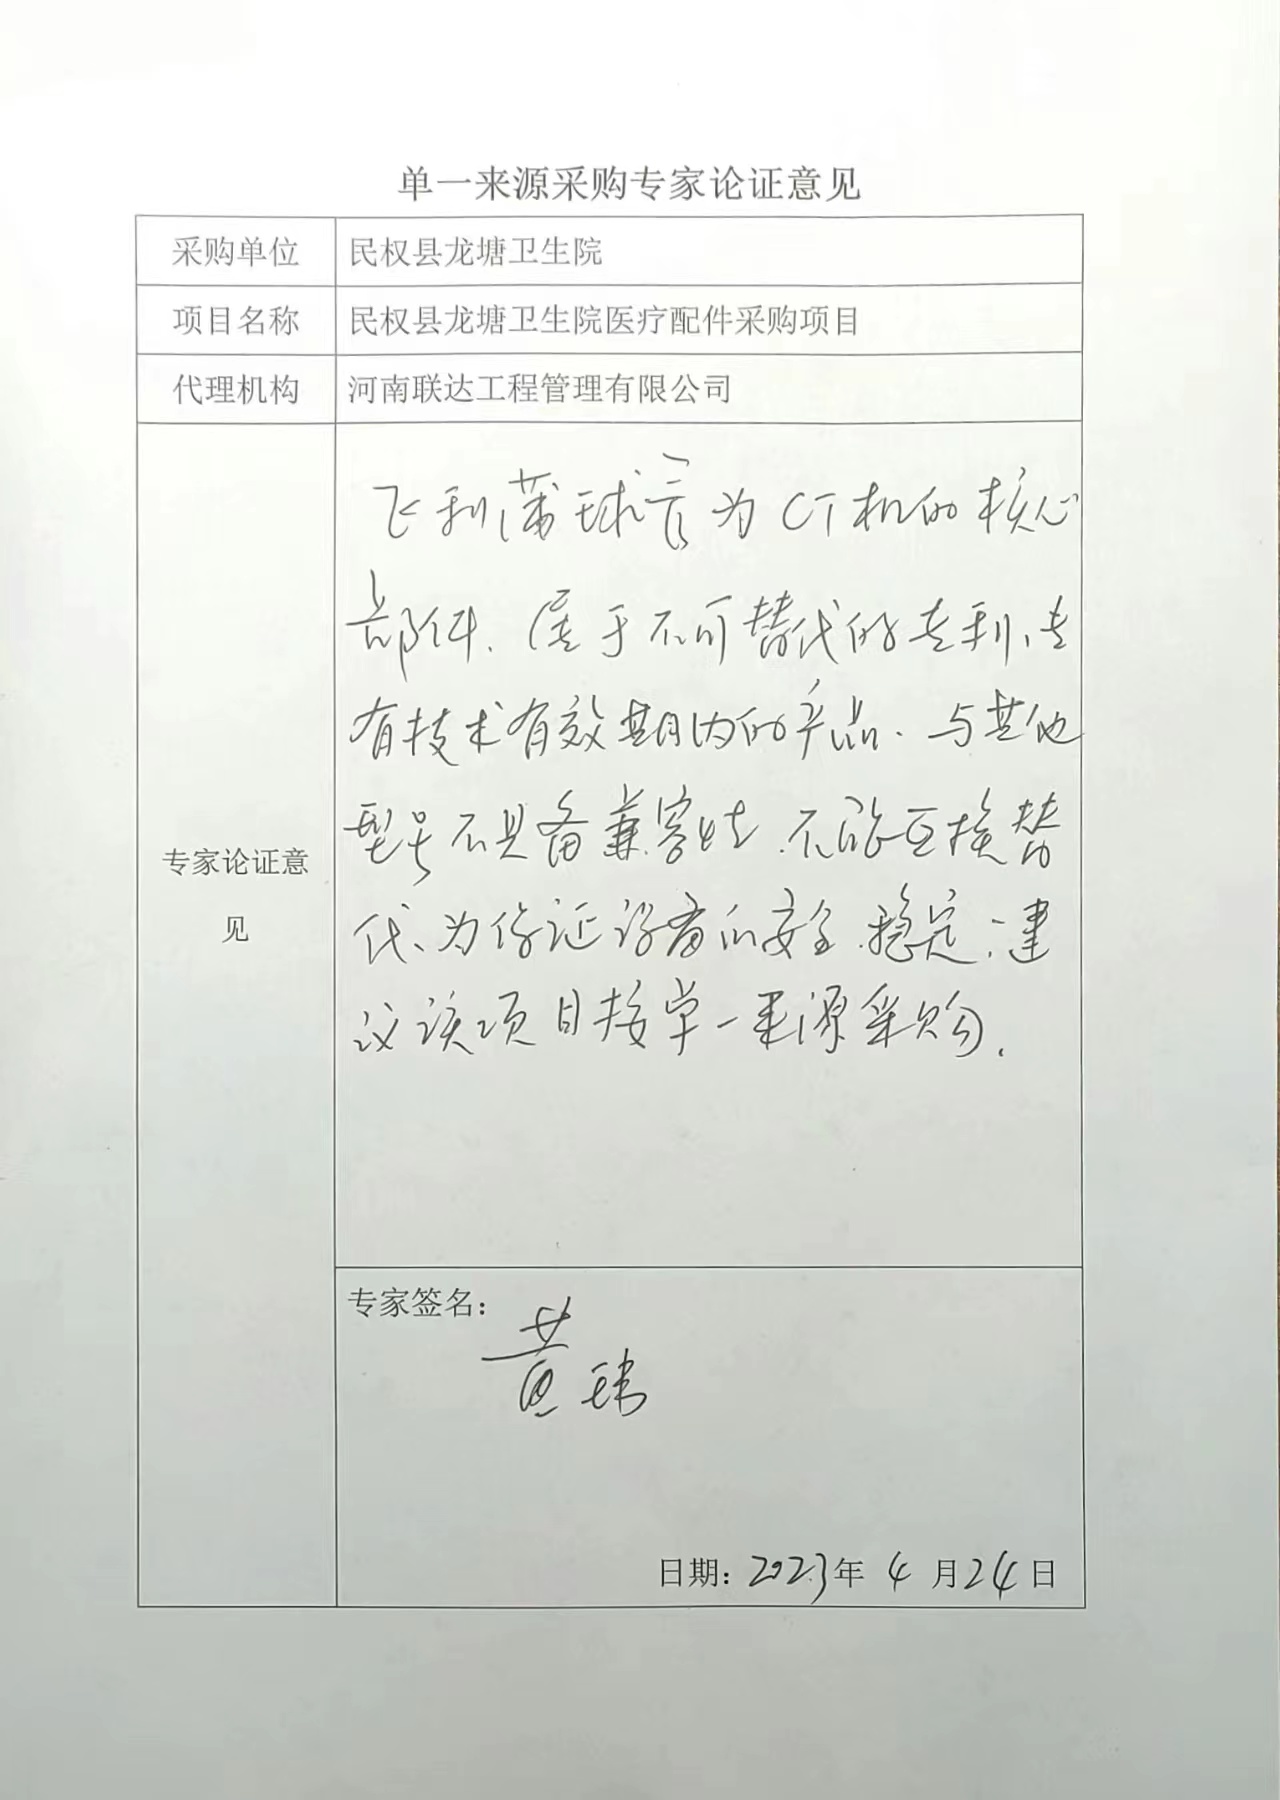 单一来源采购专家论证意见
采购单位 民权县龙塘卫生院
项目名称 民权县龙塘卫生院医疗配件采购项目
代理机构 河南联达工程管理有限公司
专家论证意
见
飞利蒲球管为CT机的核心
部件、属于不可替代的专利、专
有技术有效期内的产品、与其他
型号不具备兼容性、不能互换替
代、为保证设备的安全、稳定、建
议该项目按单一来源采购.
专家签名：
黄玮
日期：2023年4月24日